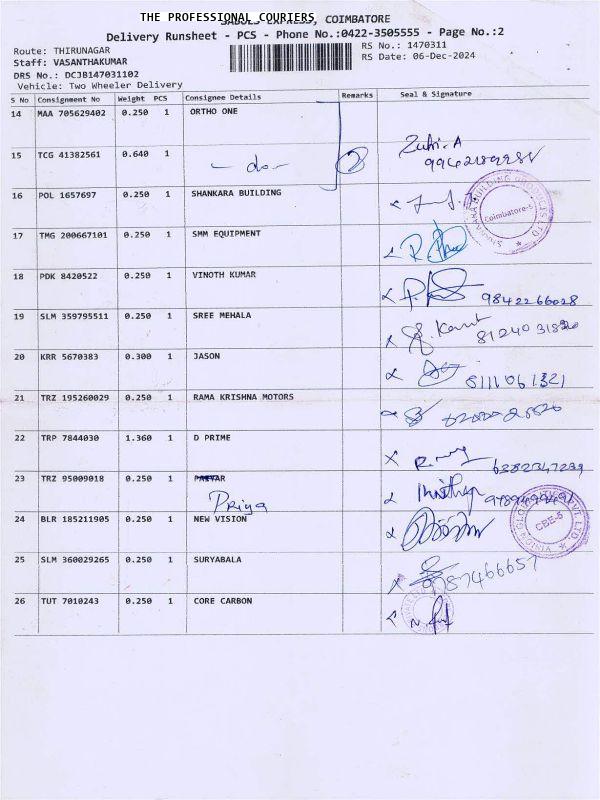 THE PROFESSIONAL COURIERS, COIMBATORE
Delivery Runsheet - PCS - Phone No.:0422-3505555 - Page No.:2
Route: THIRUNAGAR
RS No.: 1470311
Staff: VASANTHAKUMAR
RS Date: 06-Dec-2024
DRS No.: DCJB147031102
Vehicle: Two Wheeler Delivery
S No Consignment No Weight PCS Consignee Details Remarks Seal & Signature
14 MAA 705629402 0.250 1 ORTHO ONE
15 TCG 41382561 0.640 1 - do - 2
16 POL 1657697 0.250 1 SHANKARA BUILDING
Coimbatore-5
17 TMG 200667101 0.250 1 SMM EQUIPMENT
18 PDK 8420522 0.250 1 VINOTH KUMAR 9842266028
19 SLM 359795511 0.250 1 SREE MEHALA
20 KRR 5670383 0.300 1 JASON
21 TRZ 195260029 0.250 1 RAMA KRISHNA MOTORS
22 TRP 7844030 1.360 1 D PRIME 6382347239
23 TRZ 95009018 0.250 1
Priya
24 BLR 185211905 0.250 1 NEW VISION
CBE-5
25 SLM 360029265 0.250 1 SURYABALA
26 TUT 7010243 0.250 1 CORE CARBON